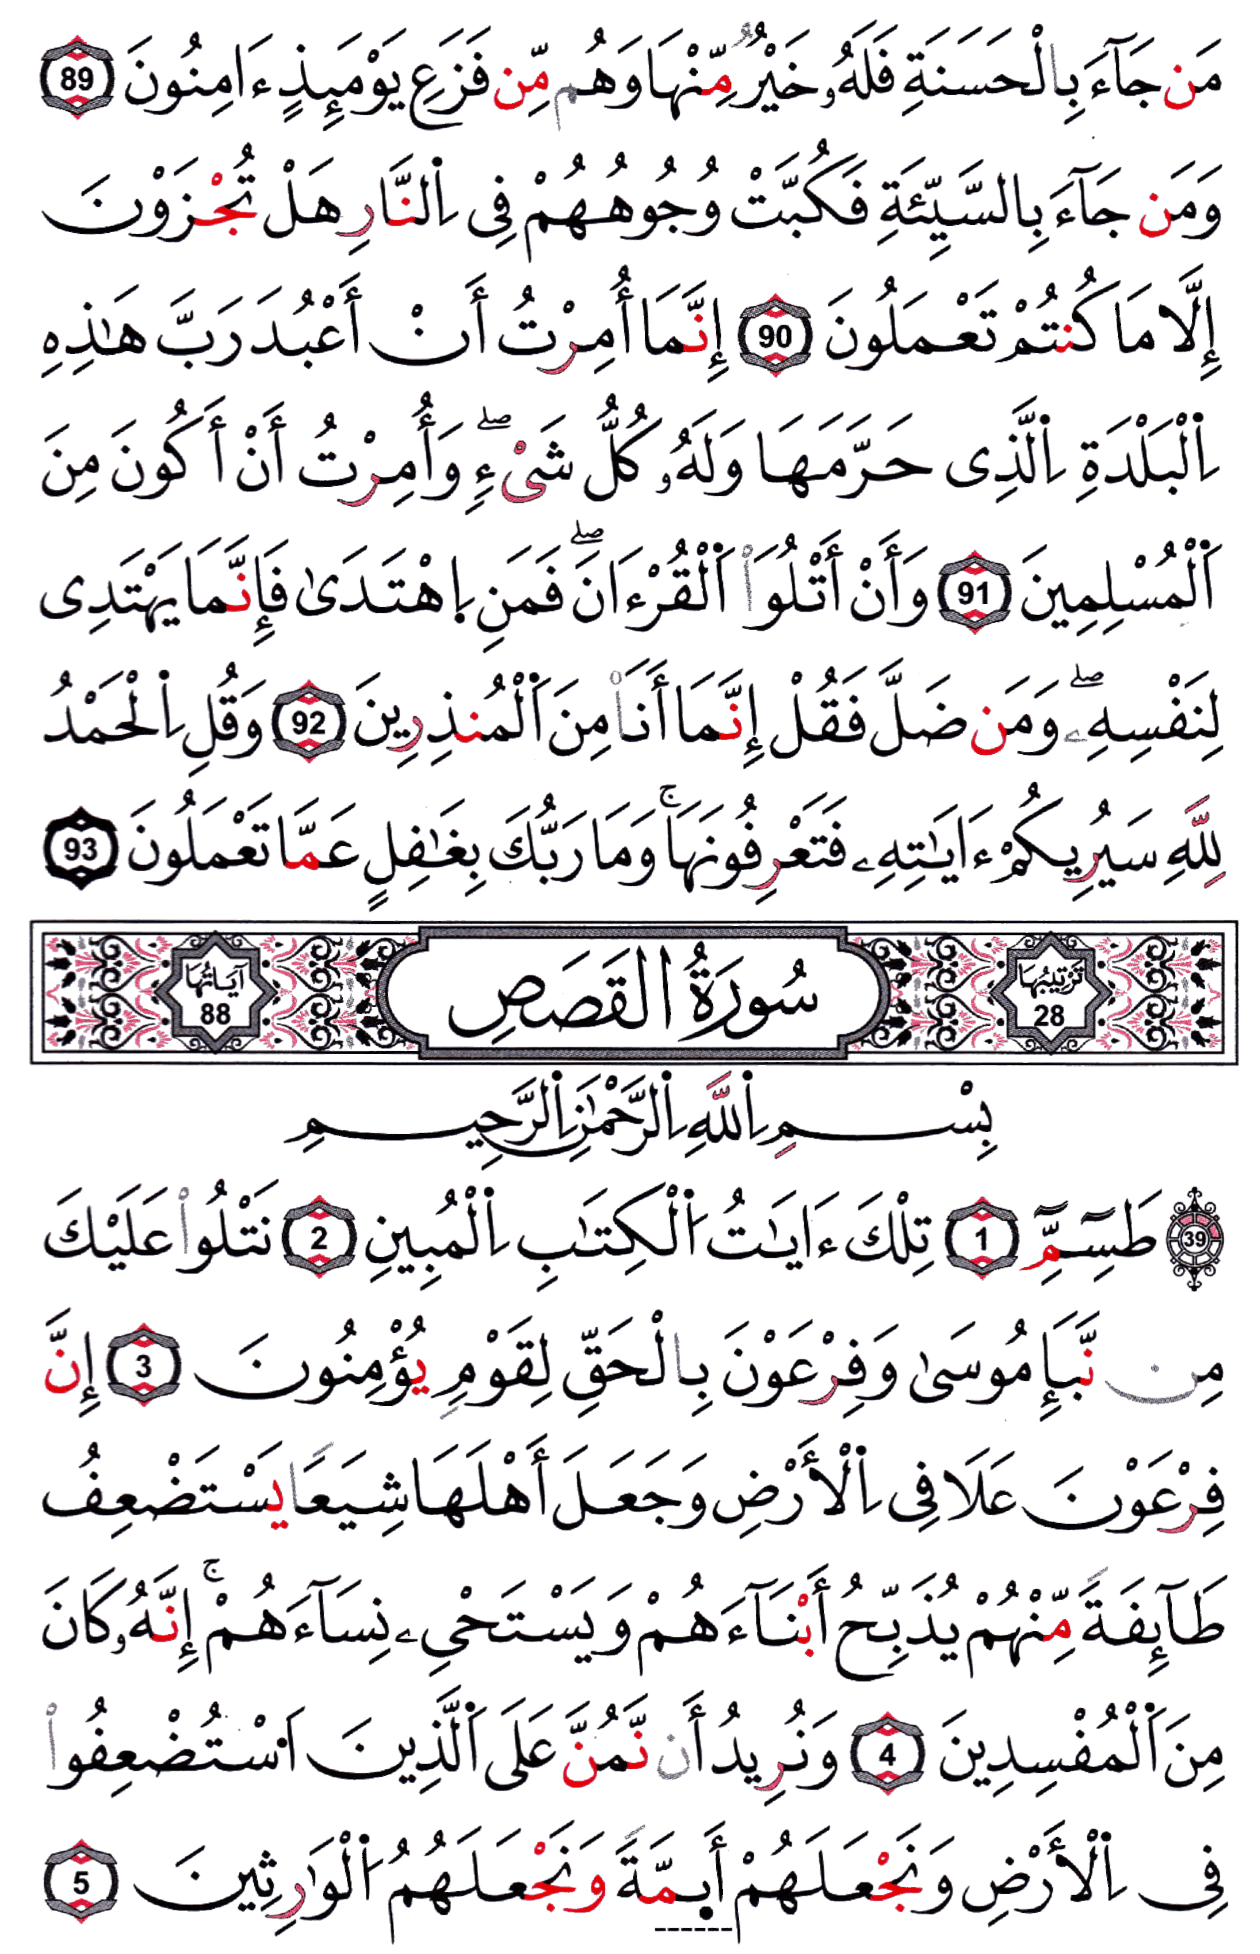 مَن جَآءَ بِالْحَسَنَةِ فَلَهُۥ خَيْرٌ مِّنْهَا وَهُم مِّن فَزَعِ يَوْمَئِذٍ ءَامِنُونَ 89
وَمَن جَآءَ بِالسَّيِّئَةِ فَكُبَّتْ وُجُوهُهُمْ فِى اِ۬لنَّارِ هَلْ تُجْزَوْنَ
إِلَّا مَا كُنتُمْ تَعْمَلُونَ 90 إِنَّمَا أُمِرْتُ أَنْ أَعْبُدَ رَبَّ هَٰذِهِ
اِ۬لْبَلْدَةِ اِ۬لَّذِى حَرَّمَهَا وَلَهُۥ كُلُّ شَىْءٍ ۖ وَأُمِرْتُ أَنْ أَكُونَ مِنَ
اَ۬لْمُسْلِمِينَ 91 وَأَنْ أَتْلُوَاْ اَ۬لْقُرْءَانَ ۖ فَمَنِ اِهْتَدَىٰ فَإِنَّمَا يَهْتَدِى
لِنَفْسِهِۦ ۖ وَمَن ضَلَّ فَقُلْ إِنَّمَا أَنَاْ مِنَ اَ۬لْمُنذِرِينَ 92 وَقُلِ اِ۬لْحَمْدُ
لِلَّهِ سَيُرِيكُمْ ءَايَٰتِهِۦ فَتَعْرِفُونَهَا ۚ وَمَا رَبُّكَ بِغَٰفِلٍ عَمَّا تَعْمَلُونَ 93
تَرْتِيبُهَا 28 سُورَةُ الْقَصَصِ آيَاتُهَا 88
بِسْمِ اِ۬للَّهِ اِ۬لرَّحْمَٰنِ اِ۬لرَّحِيمِ
39 طَسِٓمِّٓ 1 تِلْكَ ءَايَٰتُ اُ۬لْكِتَٰبِ اِ۬لْمُبِينِ 2 نَتْلُواْ عَلَيْكَ
مِن نَّبَإِ مُوسَىٰ وَفِرْعَوْنَ بِالْحَقِّ لِقَوْمٍ يُؤْمِنُونَ 3 إِنَّ
فِرْعَوْنَ عَلَا فِى اِ۬لْأَرْضِ وَجَعَلَ أَهْلَهَا شِيَعًا يَسْتَضْعِفُ
طَآئِفَةً مِّنْهُمْ يُذَبِّحُ أَبْنَآءَهُمْ وَيَسْتَحْىِۦ نِسَآءَهُمْ ۚ إِنَّهُۥ كَانَ
مِنَ اَ۬لْمُفْسِدِينَ 4 وَنُرِيدُ أَن نَّمُنَّ عَلَى اَ۬لَّذِينَ اَ۟سْتُضْعِفُواْ
فِى اِ۬لْأَرْضِ وَنَجْعَلَهُمْ أَى۪مَّةً وَنَجْعَلَهُمُ اُ۬لْوَٰرِثِينَ 5